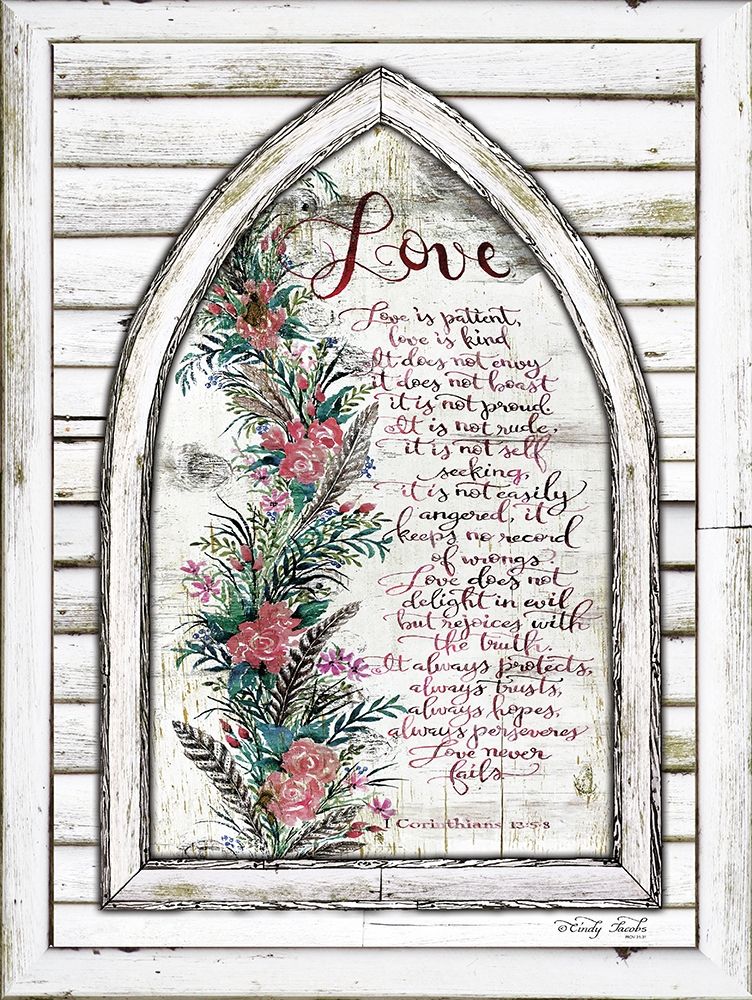 Love
Love is patient,
love is kind
It does not envy
it does not boast
it is not proud.
It is not rude,
it is not self
seeking,
it is not easily
angered, it
keeps no record
of wrongs
Love does not
delight in evil
but rejoices with
the truth.
It always protects,
always trusts,
always hopes,
always perseveres
Love never
fails
1 Corinthians 13:5-8
© Cindy Jacobs
PROV 31:31